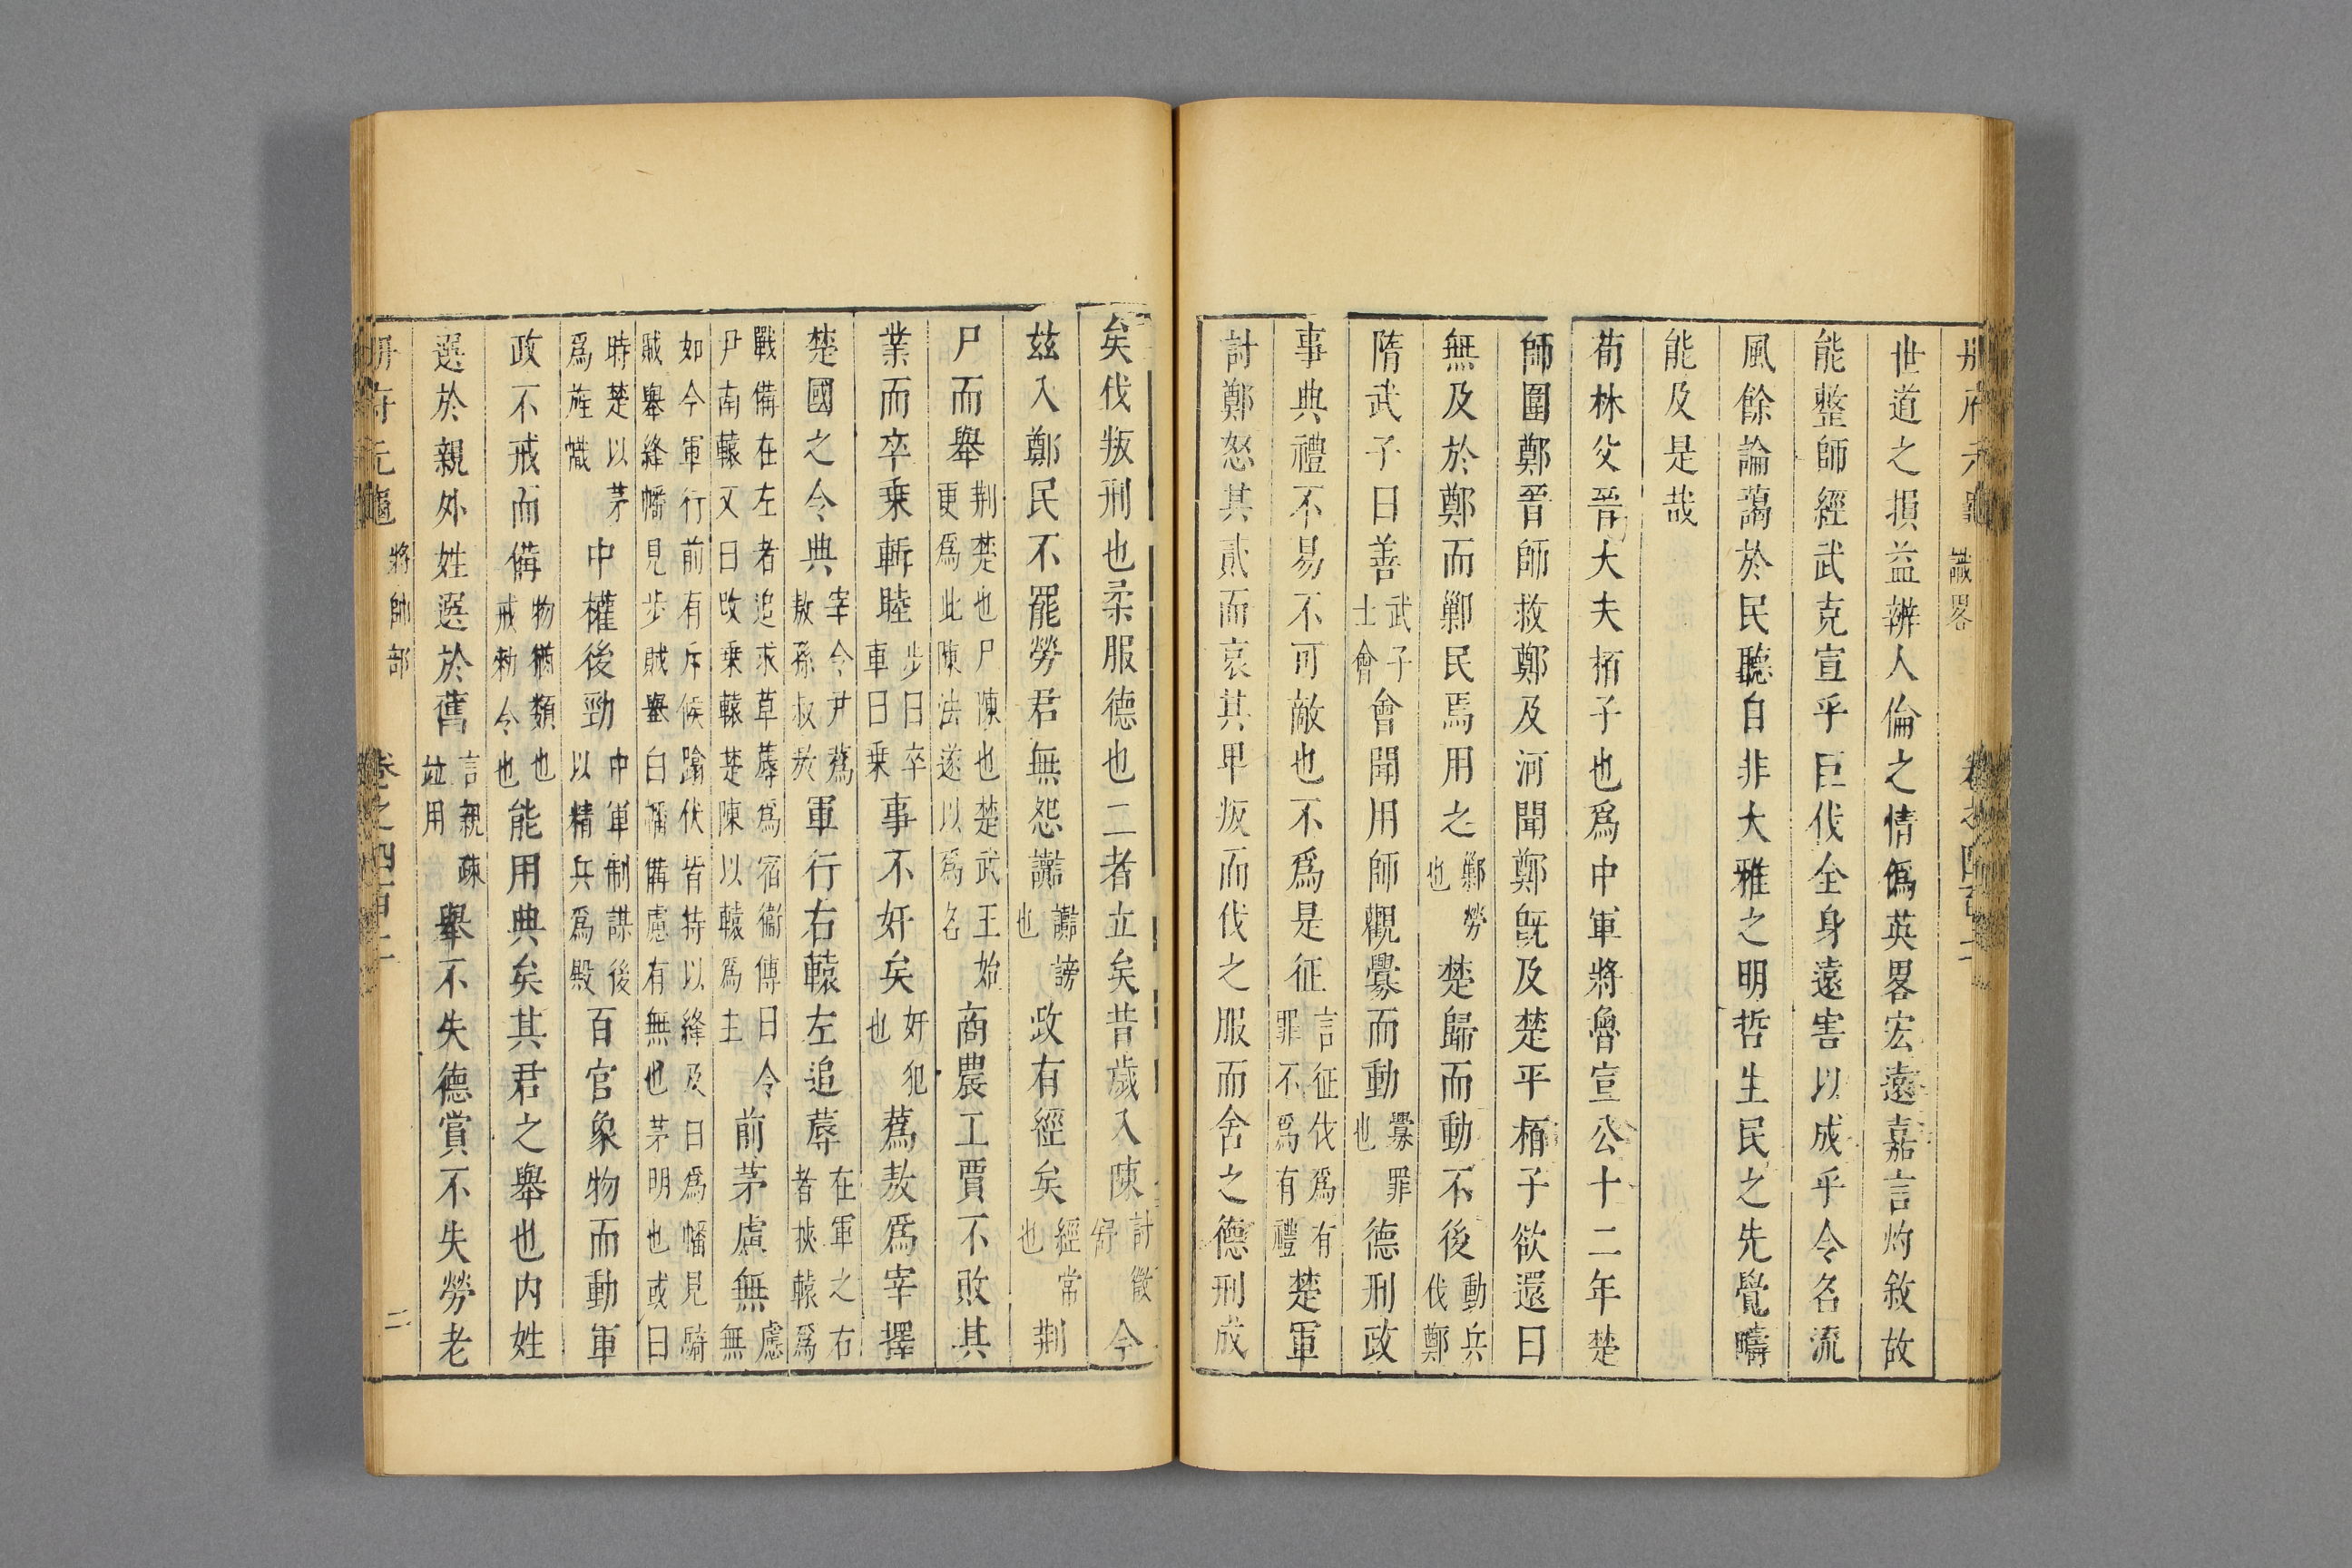 冊府元龜 識畧 卷之四百二
世道之損益辨人倫之情僞英畧宏遠嘉言灼敘故
能整師經武克宣乎巨伐全身遠害以成乎令名流
風餘論藹於民聽自非大雅之明哲生民之先覺疇
能及是哉
荀林父晉大夫栢子也爲中軍將魯宣公十二年楚
師圍鄭晉師救鄭及河聞鄭旣及楚平栢子欲還曰
無及於鄭而勦民焉用之勦勞也楚歸而動不後動兵伐鄭
隋武子曰善武子士會會聞用師觀釁而動釁罪也德刑政
事典禮不易不可敵也不爲是征言征伐爲有罪不爲有禮楚軍
討鄭怒其貳而哀其卑叛而伐之服而舍之德刑成
矣伐叛刑也柔服德也二者立矣昔歲入陳討徵舒今
兹入鄭民不罷勞君無怨讟讟謗也政有經矣經常也荆
尸而舉荆楚也尸陳也楚武王始更爲此陳法遂以爲名商農工賈不敗其
業而卒乗輯睦步曰卒車曰乗事不奸矣奸犯也蒍敖爲宰擇
楚國之令典宰令尹蒍敖孫叔敖軍行右轅左追蓐在軍之右者挾轅爲
戰備在左者追求草蓐爲宿衞傳曰令尹南轅又曰改乗轅楚陳以轅爲主前茅慮無慮無
如今軍行前有斥候蹹伏皆持以絳及白爲幡見騎賊舉絳幡見步賊舉白幡備慮有無也茅明也或曰
時楚以茅爲旌幟中權後勁中軍制謀後以精兵爲殿百官象物而動軍
政不戒而備物猶類也戒勑令也能用典矣其君之舉也内姓
選於親外姓選於舊言親疎竝用舉不失德賞不失勞老
冊府元龜 將帥部 卷之四百二 二